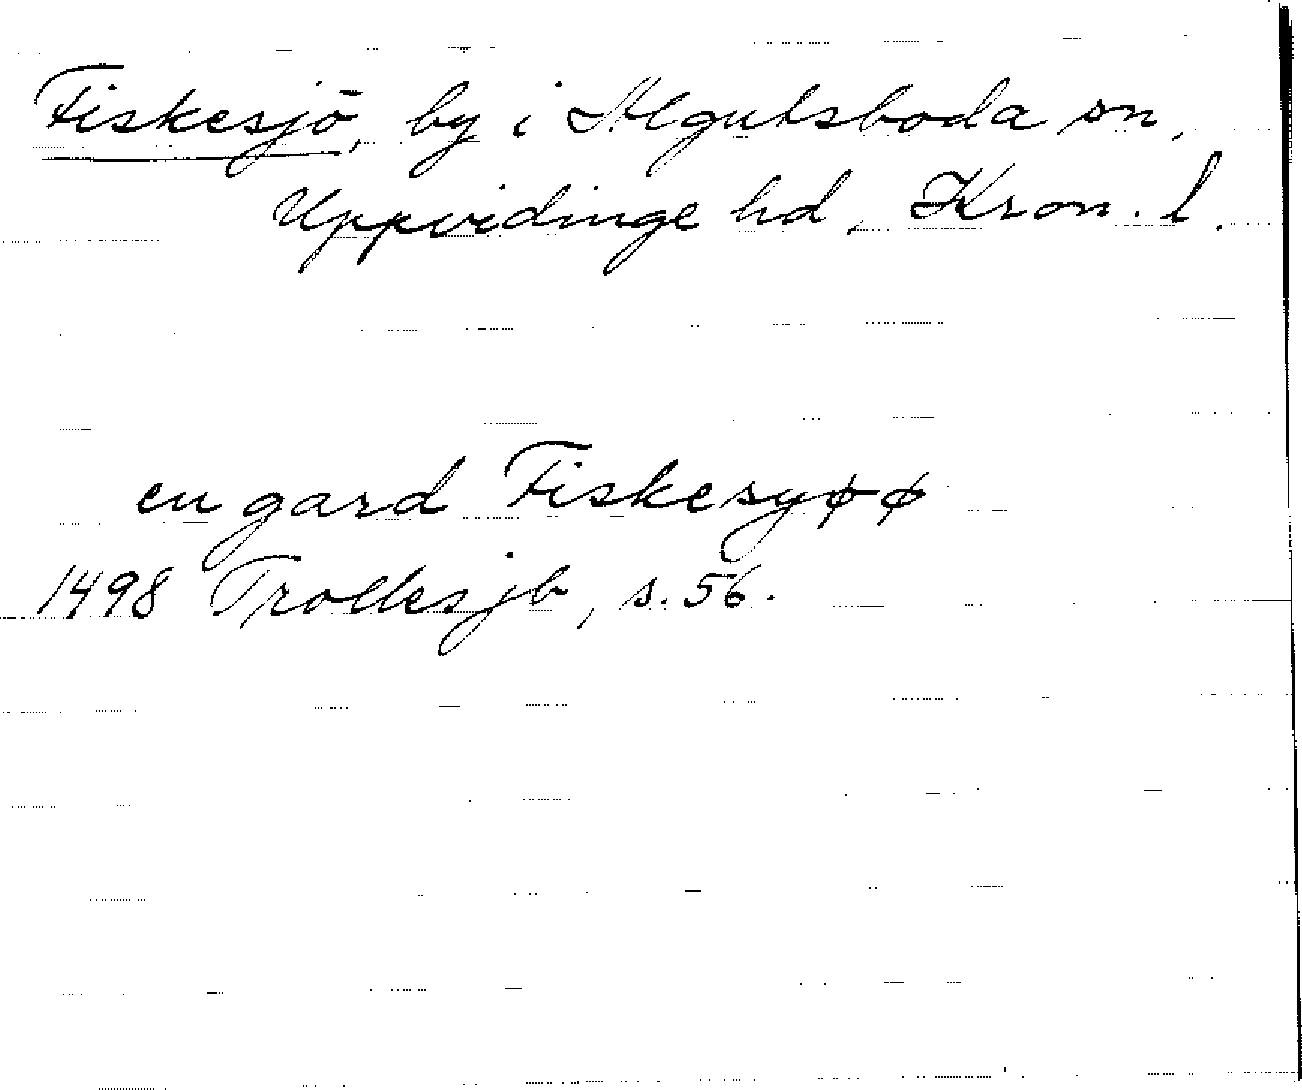 Fiskesjö, by i Algutsboda sn,
Uppvidinge hd, Kron. l.
en gard Fiskesyøø
1498 Trollesjb, s. 56.